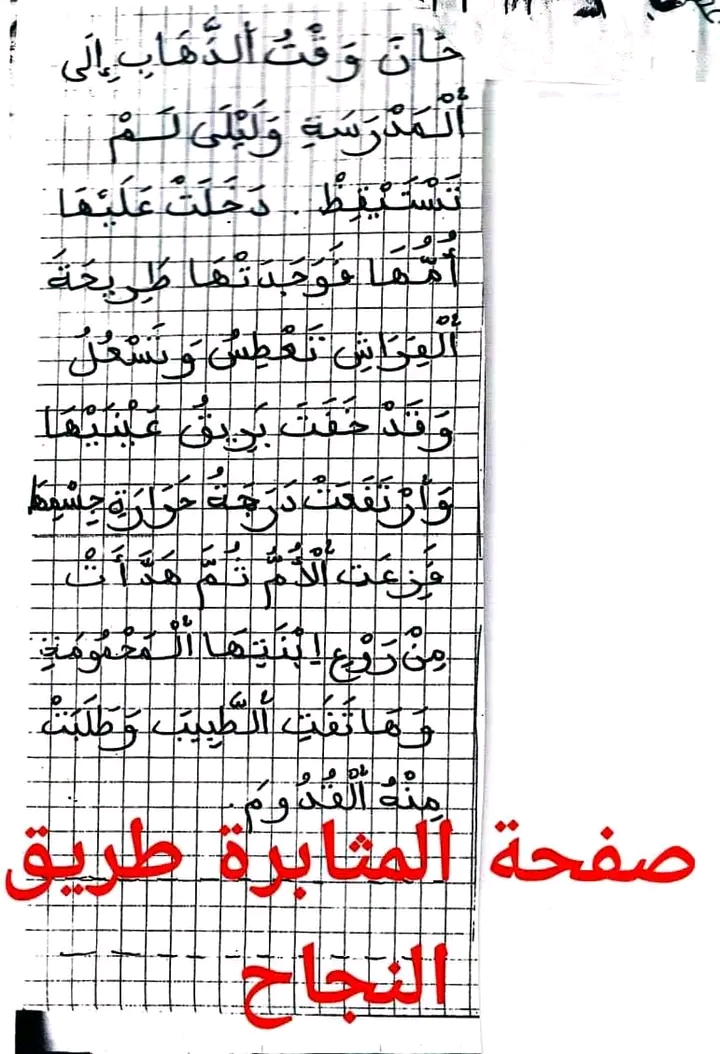 حَانَ وَقْتُ ٱلذَّهَابِ إِلَى
ٱلْمَدْرَسَةِ وَلَيْلَى لَمْ
تَسْتَيْقِظْ. دَخَلَتْ عَلَيْهَا
أُمُّهَا فَوَجَدَتْهَا طَرِيحَةَ
ٱلْفِرَاشِ تَعْطِسُ وَتَسْعُلُ
وَقَدْ خَفَتَ بَرِيقُ عَيْنَيْهَا
وَٱرْتَفَعَتْ دَرَجَةُ حَرَارَةِ جِسْمِهَا
فَزِعَتِ ٱلْأُمُّ ثُمَّ هَدَّأَتْ
مِنْ رَوْعِ اِبْنَتِهَا ٱلْمَحْمُومَةِ
وَهَاتَفَتِ ٱلطَّبِيبَ وَطَلَبَتْ
مِنْهُ ٱلْقُدُومَ.
صفحة المثابرة طريق
النجاح